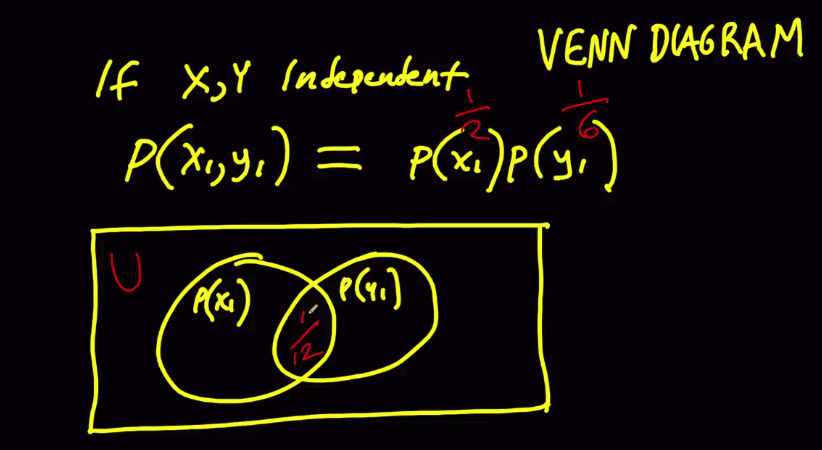 VENN DIAGRAM
If X,Y Independent
1/2 1/6
P(x₁,y₁) = P(x₁)P(y₁)
U
P(x₁) P(y₁)
1/12